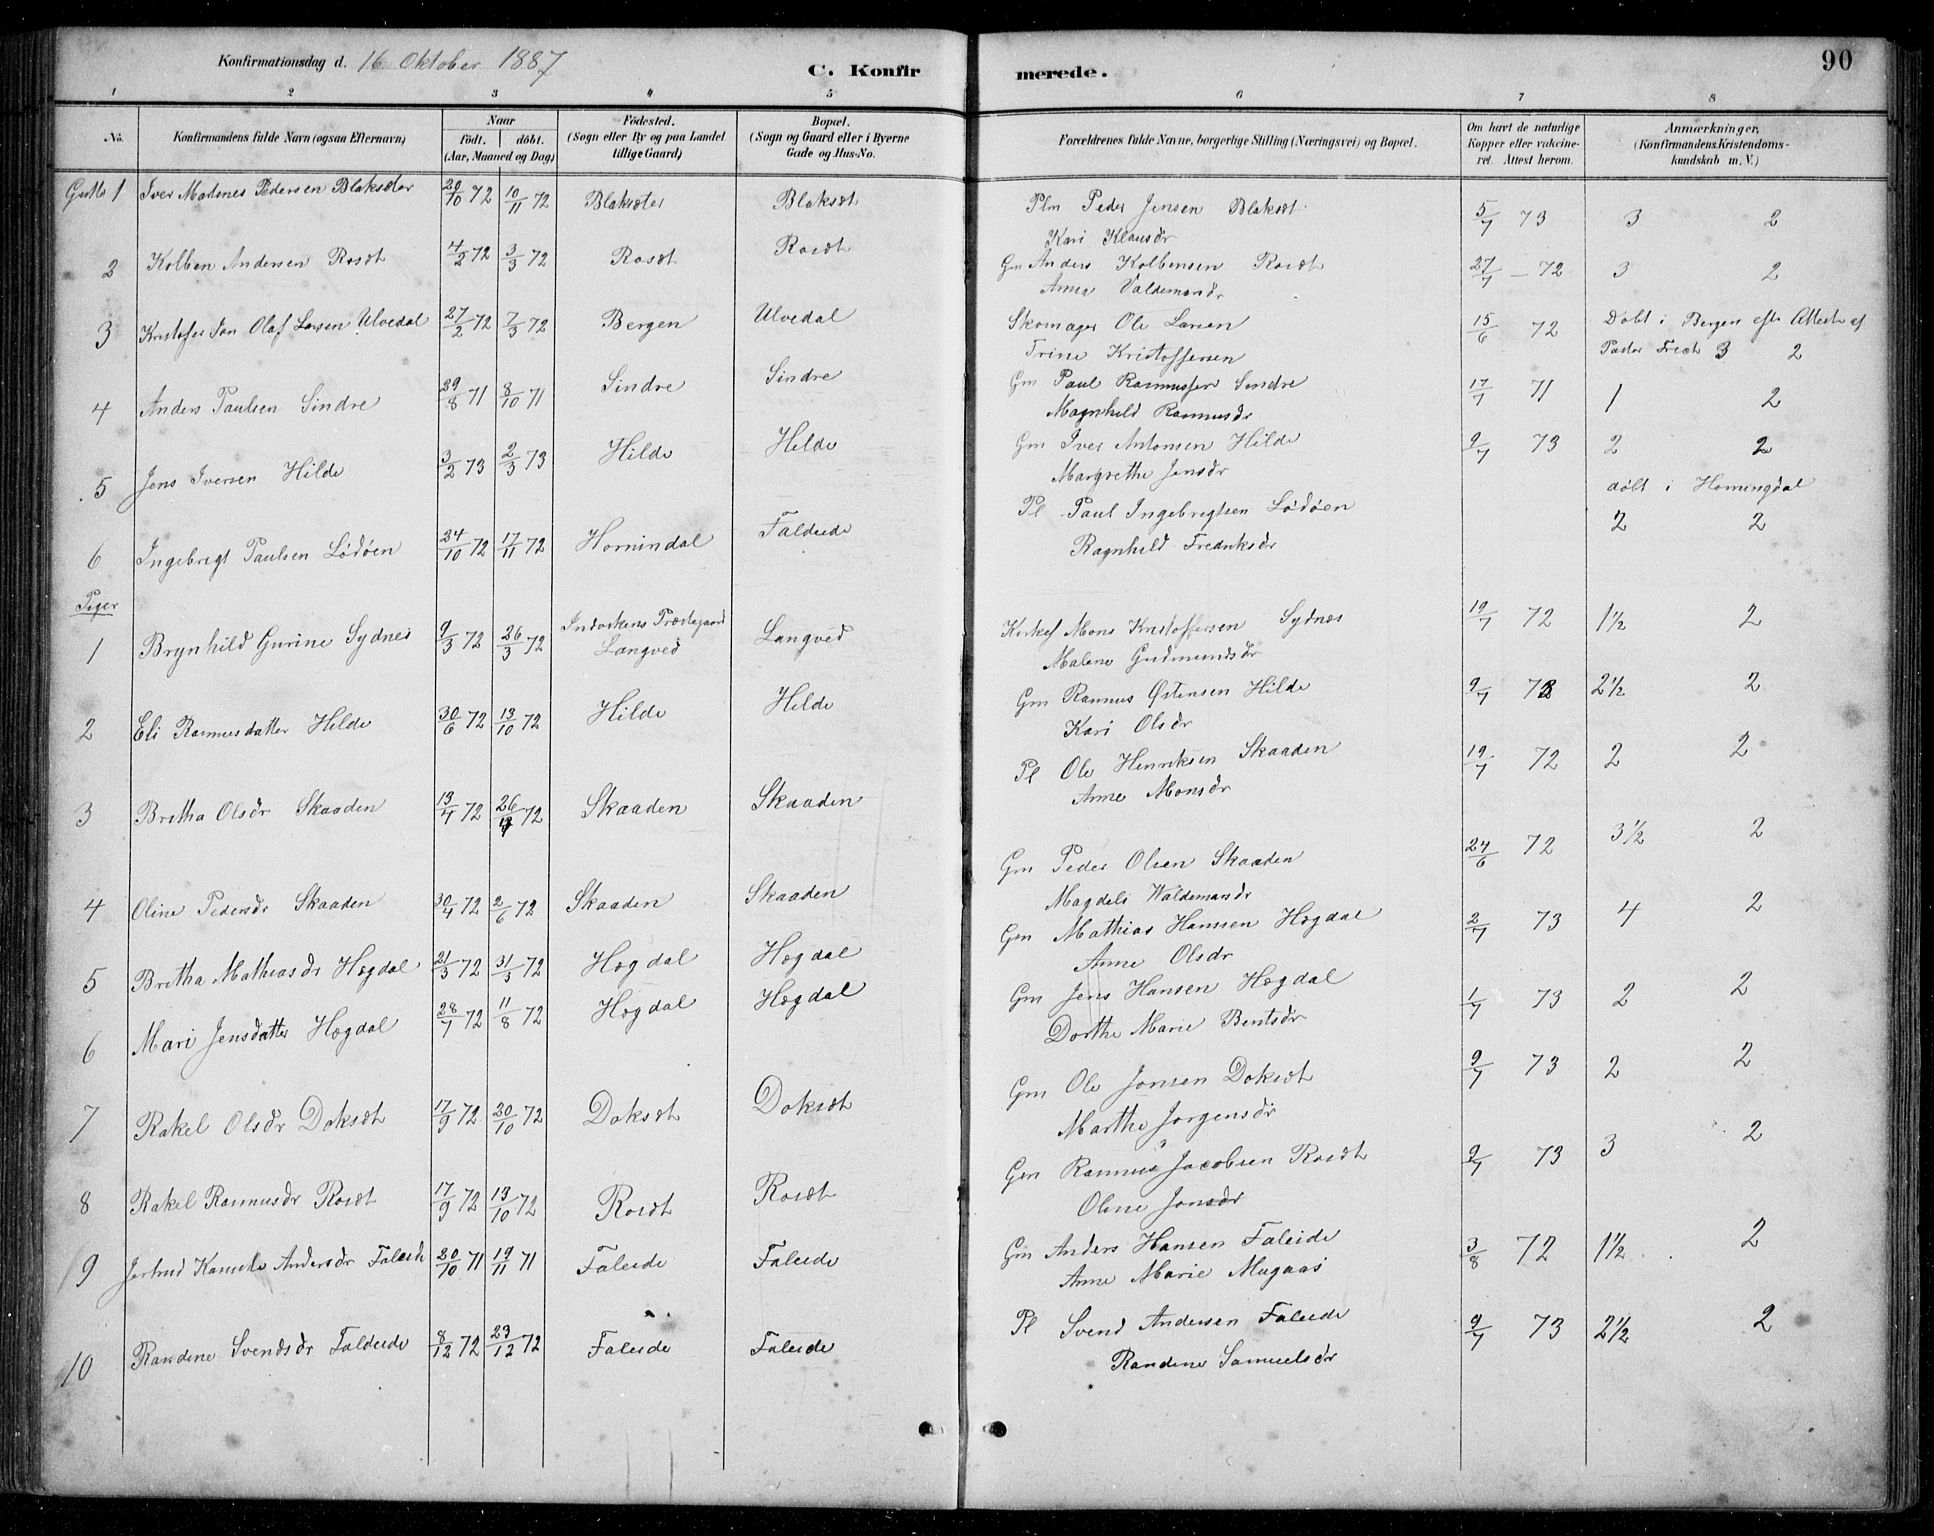 Konfirmationsdag d. 16 Oktober 1887
C. Konfirmerede.
90
1 2 3 4 5 6 7 8
No.
Konfirmandens fulde Navn (ogsaa Efternavn)
Naar
født. | døbt.
(Aar, Maaned og Dag)
Fødested.
(Sogn eller By og paa Landet
tillige Gaard)
Bopæl.
(Sogn og Gaard eller i Byerne
Gade og Hus-No.
Forældrenes fulde Navne, borgerlige Stilling (Næringsvei) og Bopæl.
Om havt de naturlige
Kopper eller vakcine-
ret. Attest herom.
Anmærkninger,
(Konfirmandens Kristendoms-
kundskab m. V.)
Gutte 1 Iver Pedersen Blaksæter 20/10 72 10/11 72 Blaksæter Blaksæt Plm Peder Jensen Blaksæt 5/7 73 3 2
Kari Klausdr
2 Kolben Andersen Rosæt 4/2 72 3/3 72 Rosæt Rosæt Gm Anders Kolbensen Rosæt 27/7 - 72 3 2
Anna Valdemarsdr
3 Kristofer Jan Olaf Larsen Ulvedal 27/2 72 7/3 72 Bergen Ulvedal Skomager Ole Larsen 15/6 72 Døbt i Bergen efter Attest af
Trine Kristoffersen Pastor 3 2
4 Anders Paulsen Sindre 29/8 71 8/10 71 Sindre Sindre Gm Paul Rasmussen Sindre 17/7 71 1 2
Magnhild Rasmusdr
5 Jens Iversen Hilde 3/2 73 2/3 73 Hilde Hilde Gm Iver Antonsen Hilde 9/7 73 2 2
Margrethe Jensdr
døbt i Homingdal
6 Ingebrigt Paulsen Lødøen 24/10 72 17/11 72 Hornindal Faldeide Pl Paul Ingebregtsen Lødøen 2 2
Ragnhild Fredriksdr
Piger
1 Brynhild Gurine Sydnes 9/3 72 26/3 72 Indvikens Præstegaard Langved Langved Kirkes Mons Kristoffersen Sydnes 19/7 72 1½ 2
Malene Gudmundsdr
2 Eli Rasmusdatter Hilde 30/6 72 13/10 72 Hilde Hilde Gm Rasmus Østensen Hilde 9/7 73 2½ 2
Kari Olsdr
3 Britha Olsdr Skaaden 13/4 72 26/ 72 Skaaden Skaaden Pl Ole Henriksen Skaaden 19/7 72 2 2
Anne Monsdr
4 Oline Pedersdr Skaaden 30/4 72 2/6 72 Skaaden Skaaden Gm Peder Olsen Skaaden 24/6 72 3½ 2
Magdeli Waldemarsdr
5 Britha Mathiasdr Høgdal 21/3 72 31/3 72 Høgdal Høgdal Gm Mathias Hanssen Høgdal 2/7 73 4 2
Anne Olsdr
6 Mari Jensdatter Høgdal 28/7 72 11/8 72 Høgdal Høgdal Gm Jens Hansen Høgdal 1/7 73 2 2
Dorthe Marie Bentsdr
7 Rakel Olsdr Doksæt 17/9 72 20/10 72 Doksæt Doksæt Gm Ole Jonsen Doksæt 9/7 73 2 2
Marthe Jørgensdr
8 Rakel Rasmusdr Rosæt 17/9 72 13/10 72 Rosæt Rosæt Gm Rasmus Jacobsen Rosæt 9/7 73 3 2
Oline Jonsdr
9 Jertrud Kamila Andersdr Faleide 20/10 71 19/11 71 Faleide Faleide Gm Anders Hansen Faleide 3/8 72 1½ 2
Anne Marie Mugaas
10 Randine Svendsdr Faldeide 8/12 72 23/12 72 Faleide Faleide Pl Svend Andersen Faleide 9/7 73 2½ 2
Randine Samuelsdr